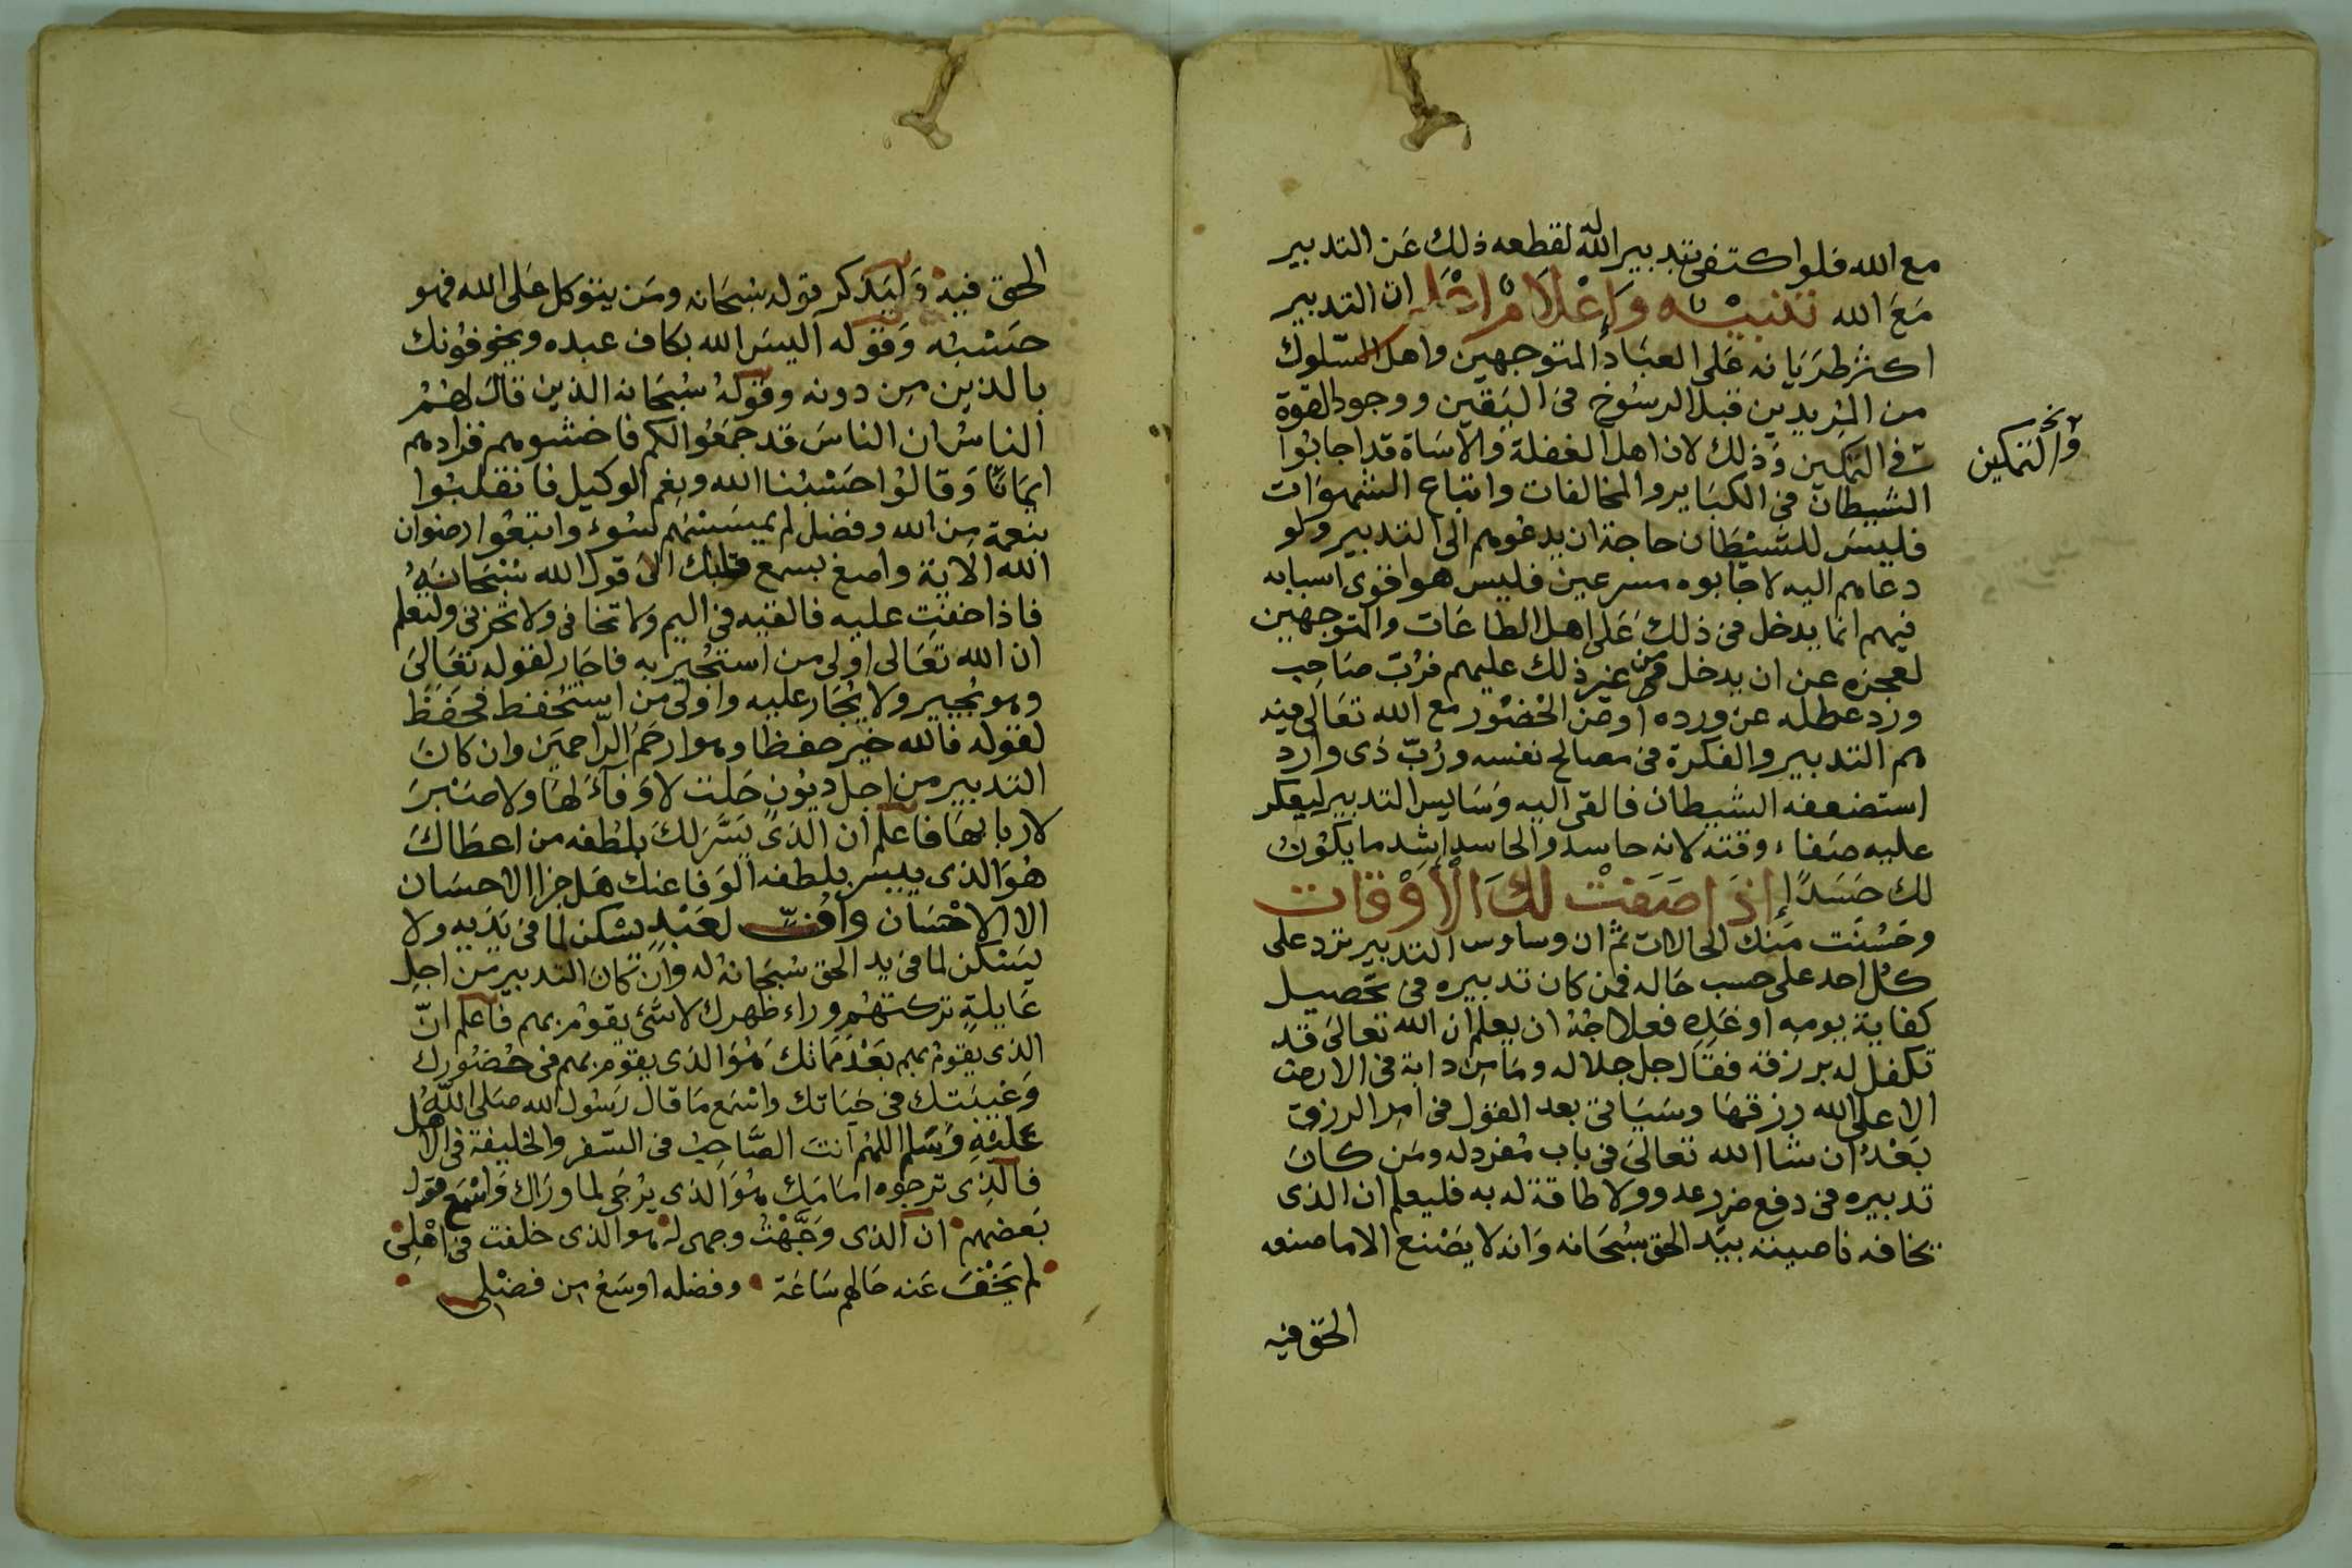 مع الله فلو اكتفى بتدبير الله له لقطعه ذلك عن التدبير
مَعَ الله تنبيه وإعلام اعلم ان التدبير
اكثر طريانه على العباد المتوجهين واهل السّلوك
من المريدين قبل الرسوخ في اليقين ووجود القوة
في التمكين وذلك لان اهل الغفلة والاساة قد اجابوا
والتمكين
الشيطان في الكباير والمخالفات واتباع الشهوات
فليس للشيطان حاجة ان يدعوهم الى التدبير ولو
دعاهم اليه لاجابوه مسرعين فليس هو اقوى اسبابه
فيهم انما يدخل في ذلك على اهل الطاعات والمتوجهين
لعجزه عن ان يدخل من غير ذلك عليهم فرُبّ صاحب
ورد عطله عن ورده او عن الحضور مع الله تعالى فيه
هم التدبير والفكرة في مصالح نفسه ورُبّ ذي وارد
استضعفه الشيطان فالقى اليه وسايس التدبير ليعكر
عليه صفاء وقته لانه حاسد والحاسد اشد ما يكون
لك حَسَدًا إذا صَفَتْ لكَ الْأوْقات
وحسُنَت مَنك الحالات ثم ان وساوس التدبير ترد على
كل احد على حسب حاله فمن كان تدبيره في تحصيل
كفاية يومه او غَدِه فعلاجُهُ ان يعلم ان الله تعالى قد
تكفل له برزقه فقال جل جلاله وما من دابة في الارض
الا على الله رزقها وسياتي بعد القول في امر الرزق
بَعْدُ ان شا الله تعالى في باب مُفرد له ومن كان
تدبيره في دفع ضرر عدو ولا طاقة له به فليعلم ان الذي
يخافه ناصيته بيد الحق سُبحانه وَانه لا يصْنع الا ما صنعه
الحق فيه
الحق فيه وَليَذكر قوله سُبحَانه ومَن يتوكل عَلى الله فهو
حسْبُه وَقوله اليسَ الله بكاف عبده ويخوفونك
بالذين من دونه وقولهُ سُبحَانه الذين قالَ لهُمُ
الناسُ ان الناسَ قد جمَعُوا لكم فاخشوهم فزادهم
ايمَانًا وَقالوُا حَسْبُنا الله ونِعْم الوكيل فانقلبُوا
بنعمة من الله وفضل لم يمسَسْهُم سُوء واتبَعُوا رضوان
الله الاية واصغ بسمع قلبك الى قول الله سُبْحَانَهُ
فاذا خفتِ عليه فالقيه في اليم ولا تخافي ولا تحزني ولتعلم
ان الله تعَالى اولى من استُجير به فاجار لقوله تعَالى
وهو يُجير ولا يُجَار عليه واولى من استُحفظ فحَفَظَ
لقوله فالله خير حفظا وهو ارحَمُ الرّاحمِيَن وان كانَ
التدبير من اجل ديُونٍ حَلت لا وَفآءَ لهَا وَلا صَبْرَ
لاربابهَا فاعلم ان الذى يَسَّرَ لكَ بلطفه من اعطاكَ
هُوَ الذى ييسر بلطفه الوَفا عنك هَل جزا الاحسَان
الا الاحْسَان وافٍّ لعَبْدٍ يسْكن لما في يَدَيه ولا
يَسْكن لما في يد الحق سُبحَانهُ له وَان كان التدبير من اجل
عَايلةٍ تركتهُم وراء ظهرك لا شَئ يقومُ بهم فاعلم انّ
الذى يقومُ بهم بَعْدَ مماتك هُوَ الذى يقوم بهم في حُضُورك
وَغيبَتك في حَياتك واسْمَع مَا قال رَسُول الله صَلى اللهُ
عَليْهِ وَسَلم اللهُم انتَ الصَّاحِبُ في السّفر والخليفة في الأهل
فالذِى ترجوه امَامَك هُوَ الذى يُرْجى لما ورَاك وَاسْمَع قول
بعَضهم ان الذى وَجَّهْتُ وجهى له هو الذى خلفت في اهْلِى
لم يَخْفَ عَنه حَالهم سَاعَة وفضله اوسَعُ من فضْلى